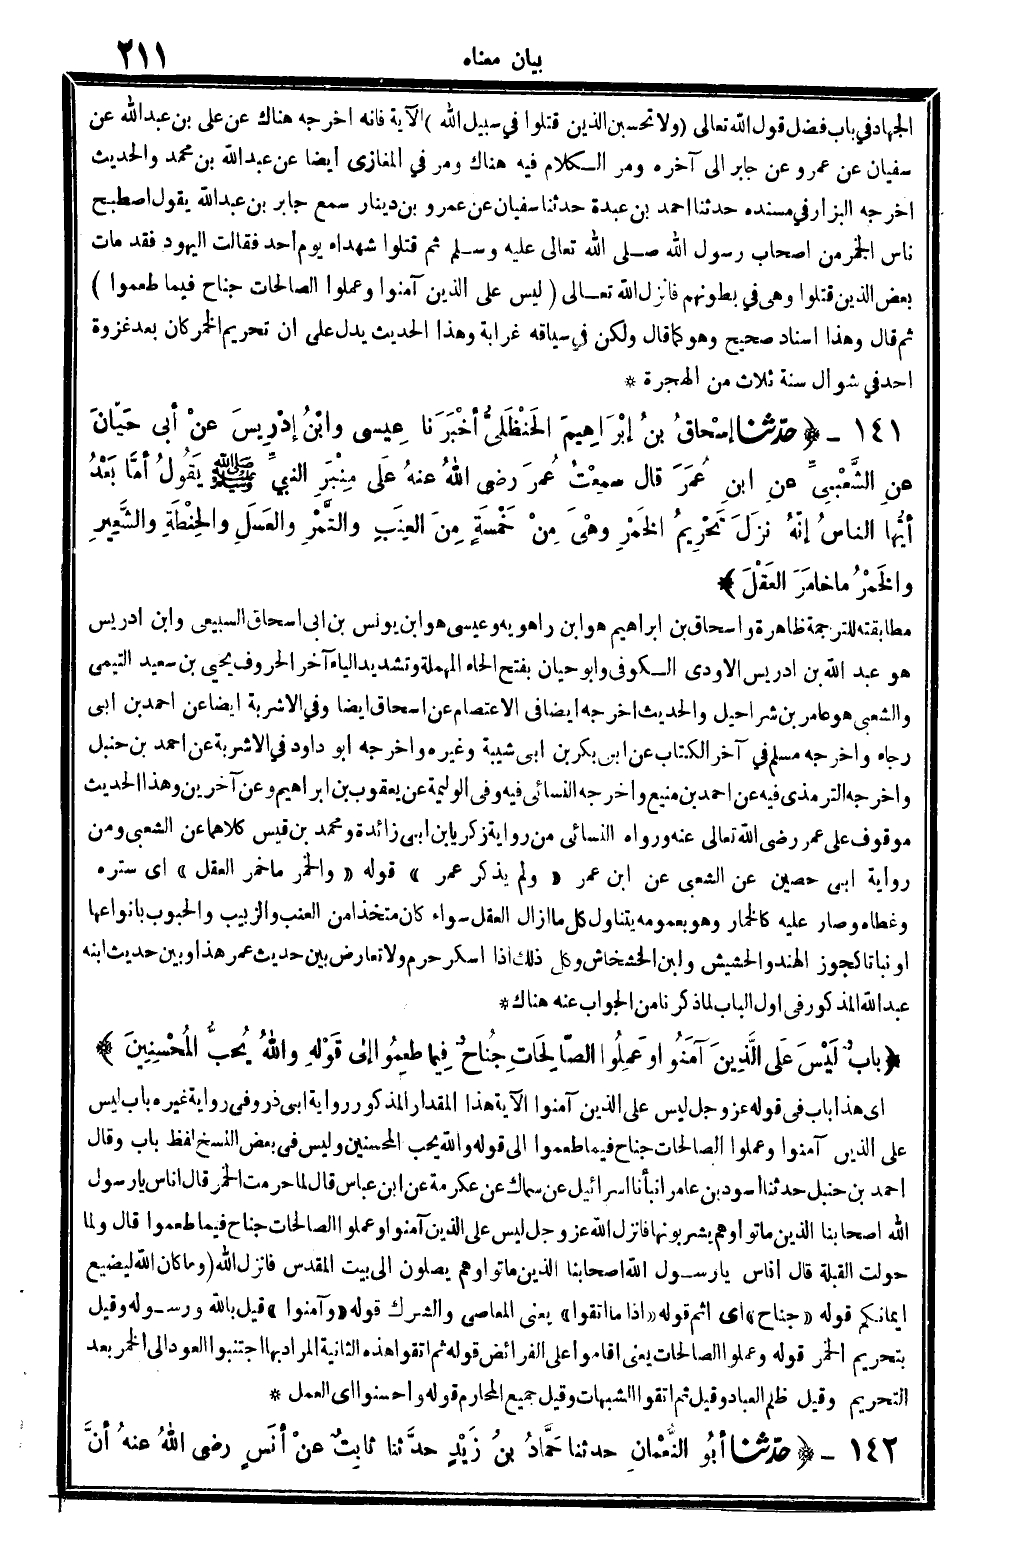 بيان معناه ٢١١
الجهاد في باب فضل قول الله تعالى (ولا تحسبن الذين قتلوا في سبيل الله) الآية فانه اخرجه هناك عن على بن عبدالله عن
سفيان عن عمرو عن جابر الى آخره ومر الكلام فيه هناك ومر في المغازى أيضا عن عبدالله بن محمد والحديث
اخرجه البزار في مسنده حدثنا احمد بن عبدة حدثنا سفيان عن عمرو بن دينار سمع جابر بن عبدالله يقول اصطبح
ناس الخمر من اصحاب رسول الله صلى الله تعالى عليه وسلم ثم قتلوا شهداء يوم أحد فقالت اليهود فقد مات
بعض الذين قتلوا وهى في بطونهم فانزل الله تعالى (ليس على الذين آمنوا وعملوا الصالحات جناح فيما طعموا)
ثم قال وهذا اسناد صحيح وهو كما قال ولكن في سياقه غرابة وهذا الحديث يدل على ان تحريم الخمر كان بعد غزوة
احد في شوال سنة ثلاث من الهجرة *
١٤١ - ﴿ حدّثنا إسْحاقُ بنُ إبْرَاهِيمَ الحَنْظَلِىُّ أخْبَرَنا عِيسى وابْنُ إدْرِيسَ عنْ أبى حَيّانَ
عنِ الشَّعْبِيِّ عنِ ابنِ عُمَرَ قال سمِعْتُ عُمرَ رضى اللهُ عنهُ علَى مِنْبَرِ النبيِّ ﷺ يَقُولُ أمَّا بَعْدُ
أيُّها الناسُ إنّهُ نزَلَ تَحْرِيمُ الخَمْرِ وهْىَ مِنْ خَمْسَةٍ مِنَ العِنَبِ والتّمْرِ والعَسَلِ والحِنْطَةِ والشَّعِيرِ
والخَمْرُ ما خامَرَ العَقْلَ ﴾
مطابقته للترجمة ظاهرة واسحاق بن ابراهيم هو ابن راهويه وعيسى هو ابن يونس بن ابى اسحاق السبيعى وابن ادريس
هو عبد الله بن ادريس الاودى الكوفى وابو حيان بفتح الحاء المهملة وتشديد الياء آخر الحروف يحيى بن سعيد التيمى
والشعبى هو عامر بن شراحيل والحديث اخرجه ايضا فى الاعتصام عن اسحاق ايضا وفي الاشربة ايضا عن احمد بن ابى
رجاء واخرجه مسلم في آخر الكتاب عن ابى بكر بن ابى شيبة وغيره واخرجه ابو داود في الاشربة عن احمد بن حنبل
واخرجه الترمذى فيه عن احمد بن منيع واخرجه النسائى فيه وفى الوليمة عن يعقوب بن ابراهيم وعن آخرين وهذا الحديث
موقوف على عمر رضى الله تعالى عنه ورواه النسائى من رواية زكريا بن ابى زائدة ومحمد بن قيس كلاهما عن الشعبى ومن
رواية ابى حصين عن الشعبى عن ابن عمر «ولم يذكر عمر» قوله «والخمر ما خمر العقل» اى ستره
وغطاه وصار عليه كالخمار وهو بعمومه يتناول كل ما ازال العقل سواء كان متخذا من العنب والزبيب والحبوب بانواعها
او نباتا كجوز الهند والحشيش ولبن الخشخاش وكل ذلك اذا اسكر حرم ولا تعارض بين حديث عمر هذا وبين حديث ابنه
عبدالله المذكور فى اول الباب لما ذكرنا من الجواب عنه هناك *
﴿ بابٌ لَيْسَ عَلَى الَّذِينَ آمَنُوا وعَمِلُوا الصّالِحَاتِ جُناحٌ فِيما طَعِمُوا إلى قَوْلِهِ واللهُ يُحِبُّ المُحْسِنِينَ ﴾
اى هذا باب فى قوله عز وجل ليس على الذين آمنوا الآية هذا المقدار المذكور رواية ابى ذر وفى رواية غيره باب ليس
على الذين آمنوا وعملوا الصالحات جناح فيما طعموا الى قوله والله يحب المحسنين وليس فى بعض النسخ لفظ باب وقال
احمد بن حنبل حدثنا اسود بن عامر انبأنا اسرائيل عن سماك عن عكرمة عن ابن عباس قال لما حرمت الخمر قال اناس يا رسول
الله اصحابنا الذين ماتوا وهم يشربونها فانزل الله عز وجل ليس على الذين آمنوا وعملوا الصالحات جناح فيما طعموا قال ولما
حولت القبلة قال اناس يا رسول الله اصحابنا الذين ماتوا وهم يصلون الى بيت المقدس فانزل الله (وما كان الله ليضيع
ايمانكم قوله «جناح» اى اثم قوله «اذا ما اتقوا» يعنى المعاصى والشرك قوله «وآمنوا» قيل بالله ورسوله وقيل
بتحريم الخمر قوله وعملوا الصالحات يعنى اقاموا على الفرائض قوله ثم اتقوا هذه الثانية المراد بها اجتنبوا العود الى الخمر بعد
التحريم وقيل ظلم العباد وقيل ثم اتقوا الشبهات وقيل جميع المحارم قوله واحسنوا اى العمل *
١٤٢ - ﴿ حدّثنا أبُو النُّعْمانِ حدثنا حَمَّادُ بنُ زَيْدٍ حدّثنا ثابِتٌ عنْ أنَسٍ رضى اللهُ عنهُ أنَّ